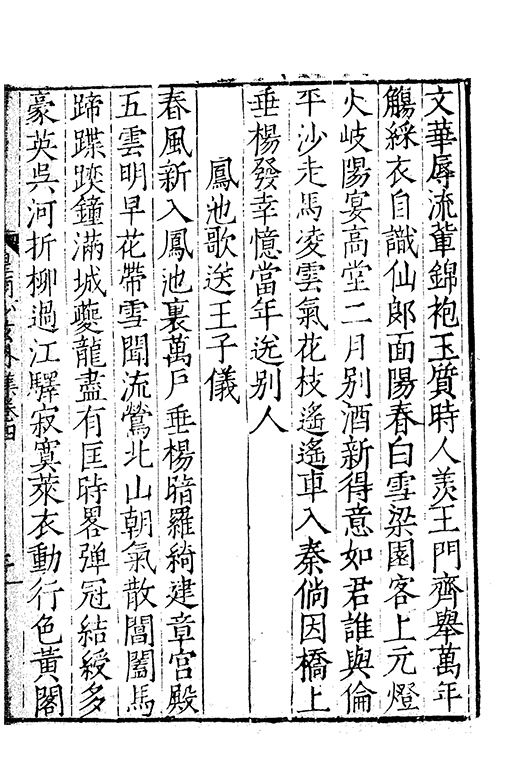 文華辱流輩錦袍玉質時人羨王門齊舉萬年
觴綵衣自識仙郎面陽春白雪梁園客上元燈
火岐陽宴高堂二月别酒新得意如君誰與倫
平沙走馬凌雲氣花枝遙遙車入秦倘因橋上
垂楊發幸憶當年送别人
鳳池歌送王子儀
春風新入鳳池裏萬戶垂楊暗羅綺建章宮殿
五雲明早花帶雪聞流鶯北山朝氣散閶闔馬
蹄蹀踥鐘滿城夔龍盡有匡時畧弹冠結綬多
豪英吳河折柳過江驛寂寞萊衣動行色黃閣